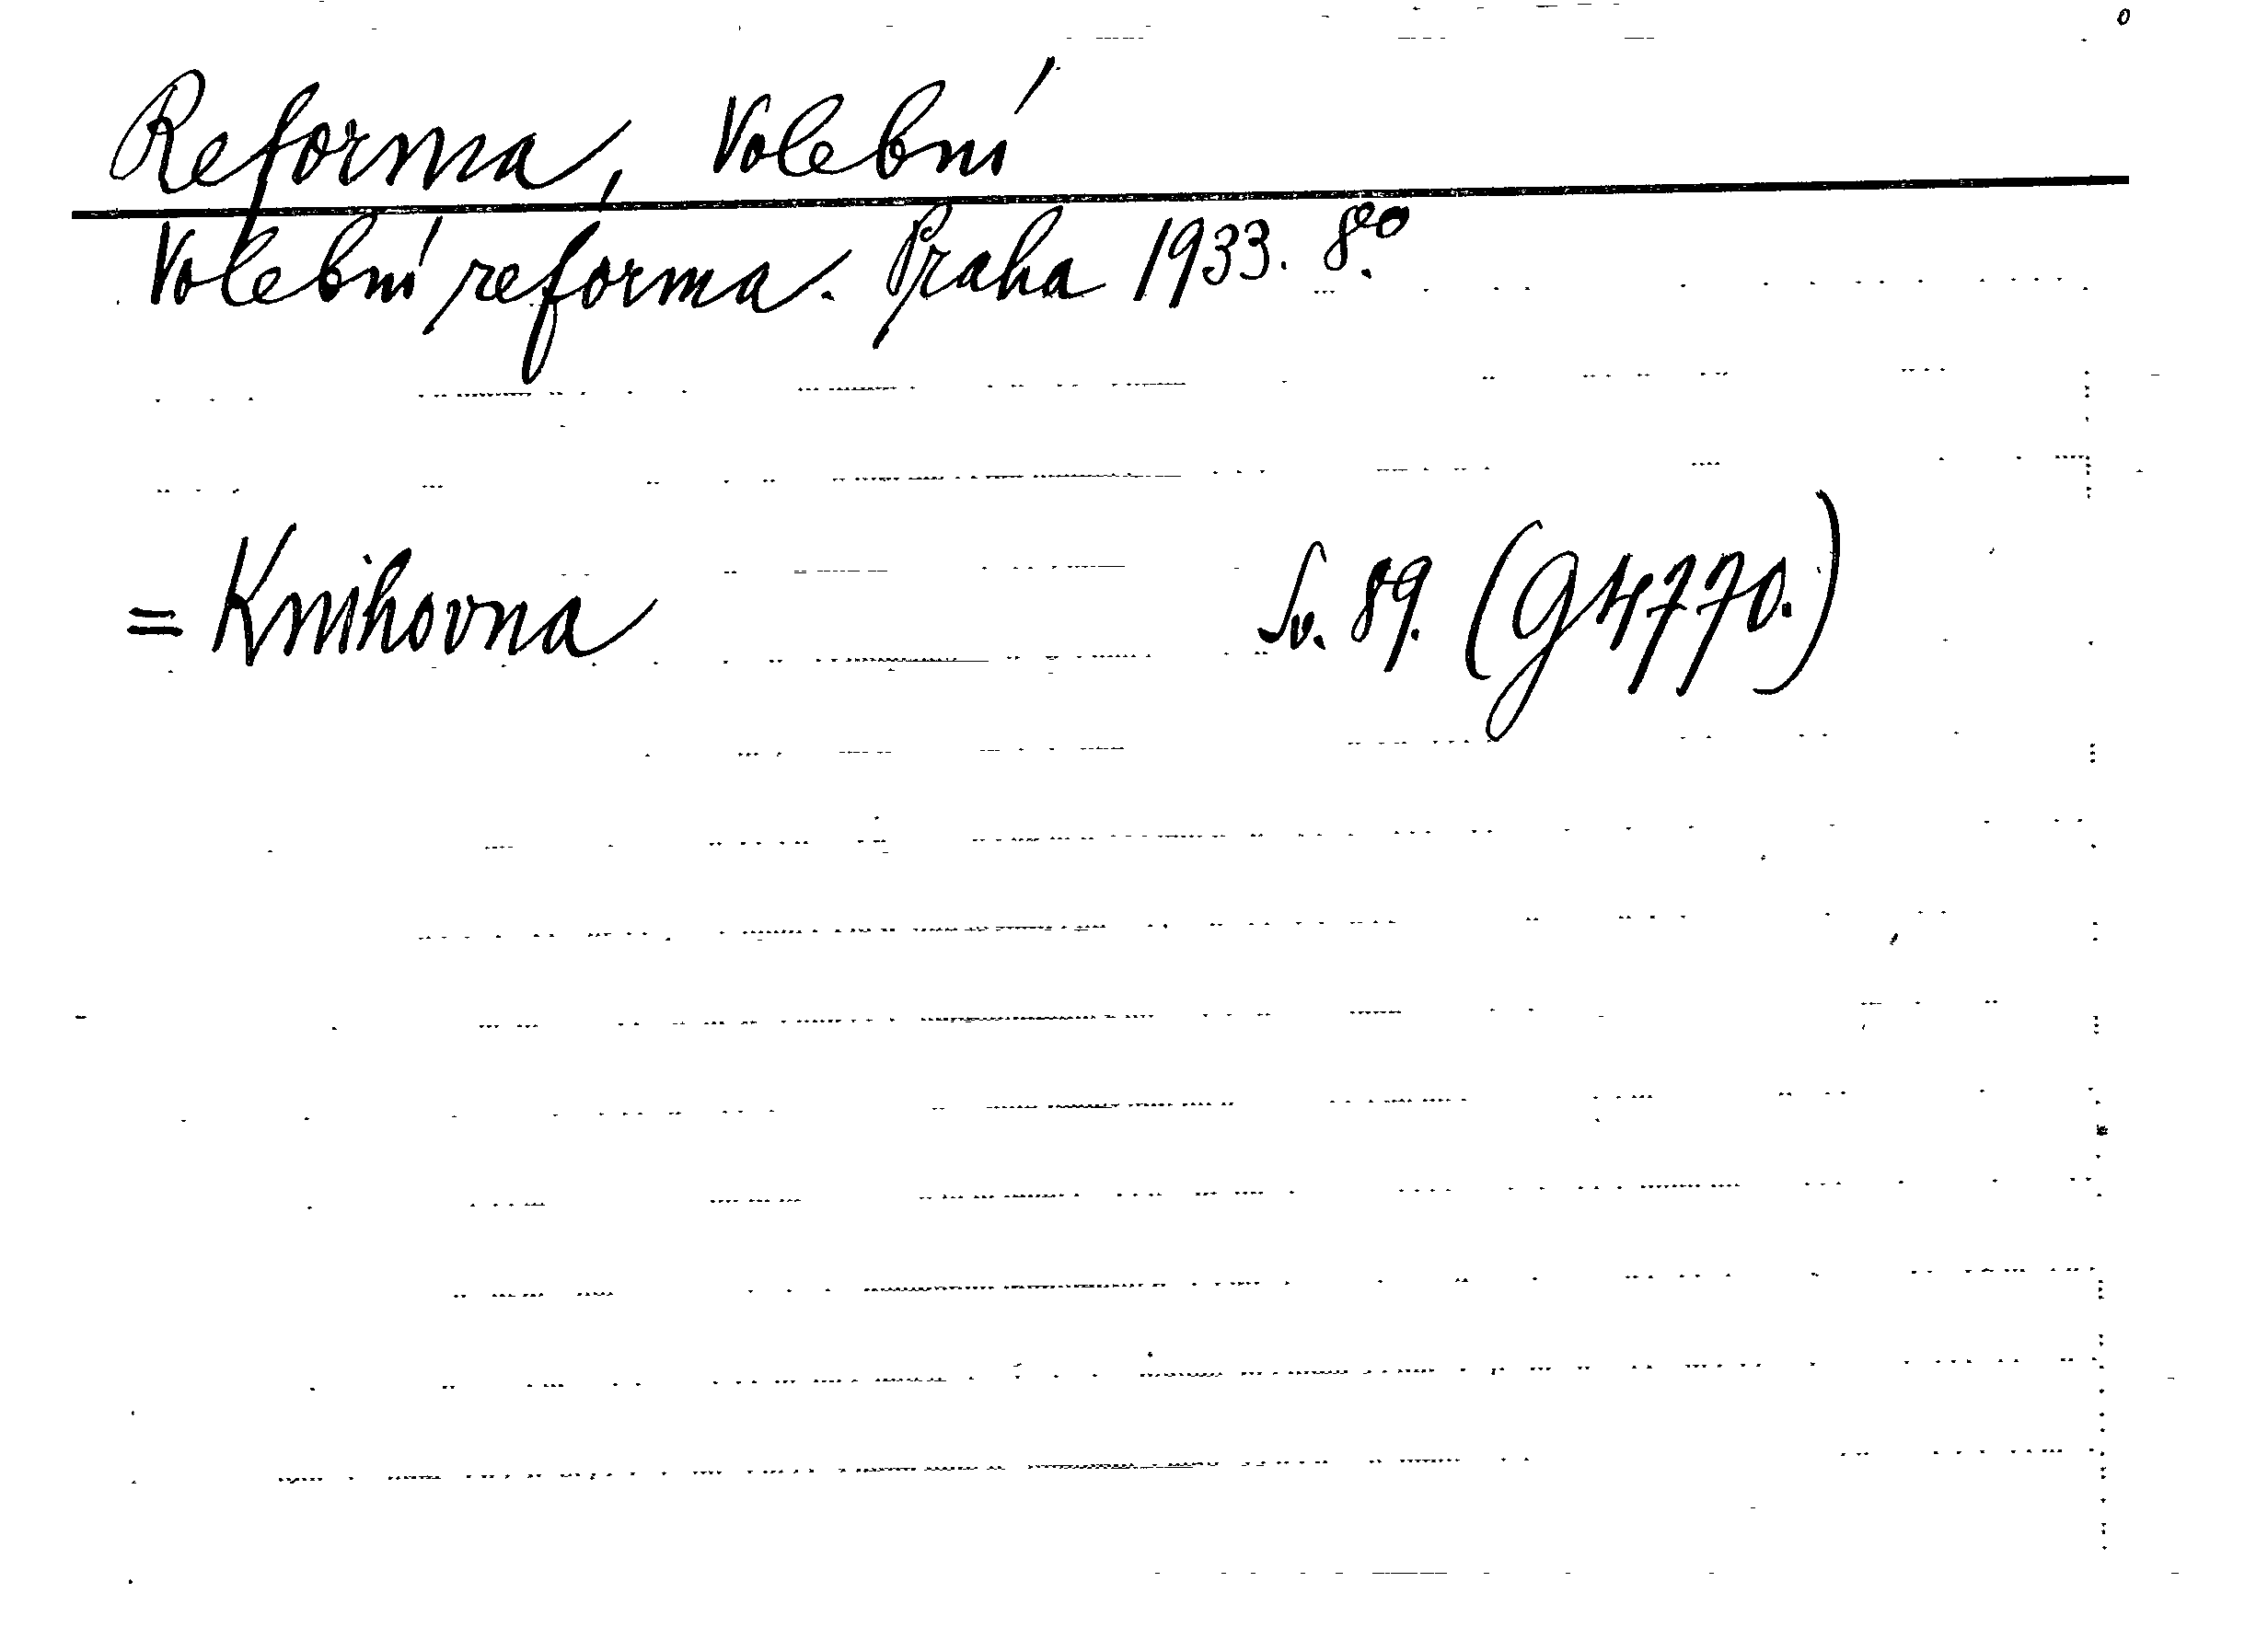 Reforma, Volební
Volební reforma. Praha 1933. 8°.
= Knihovna Sv. 89. (G 4770.)